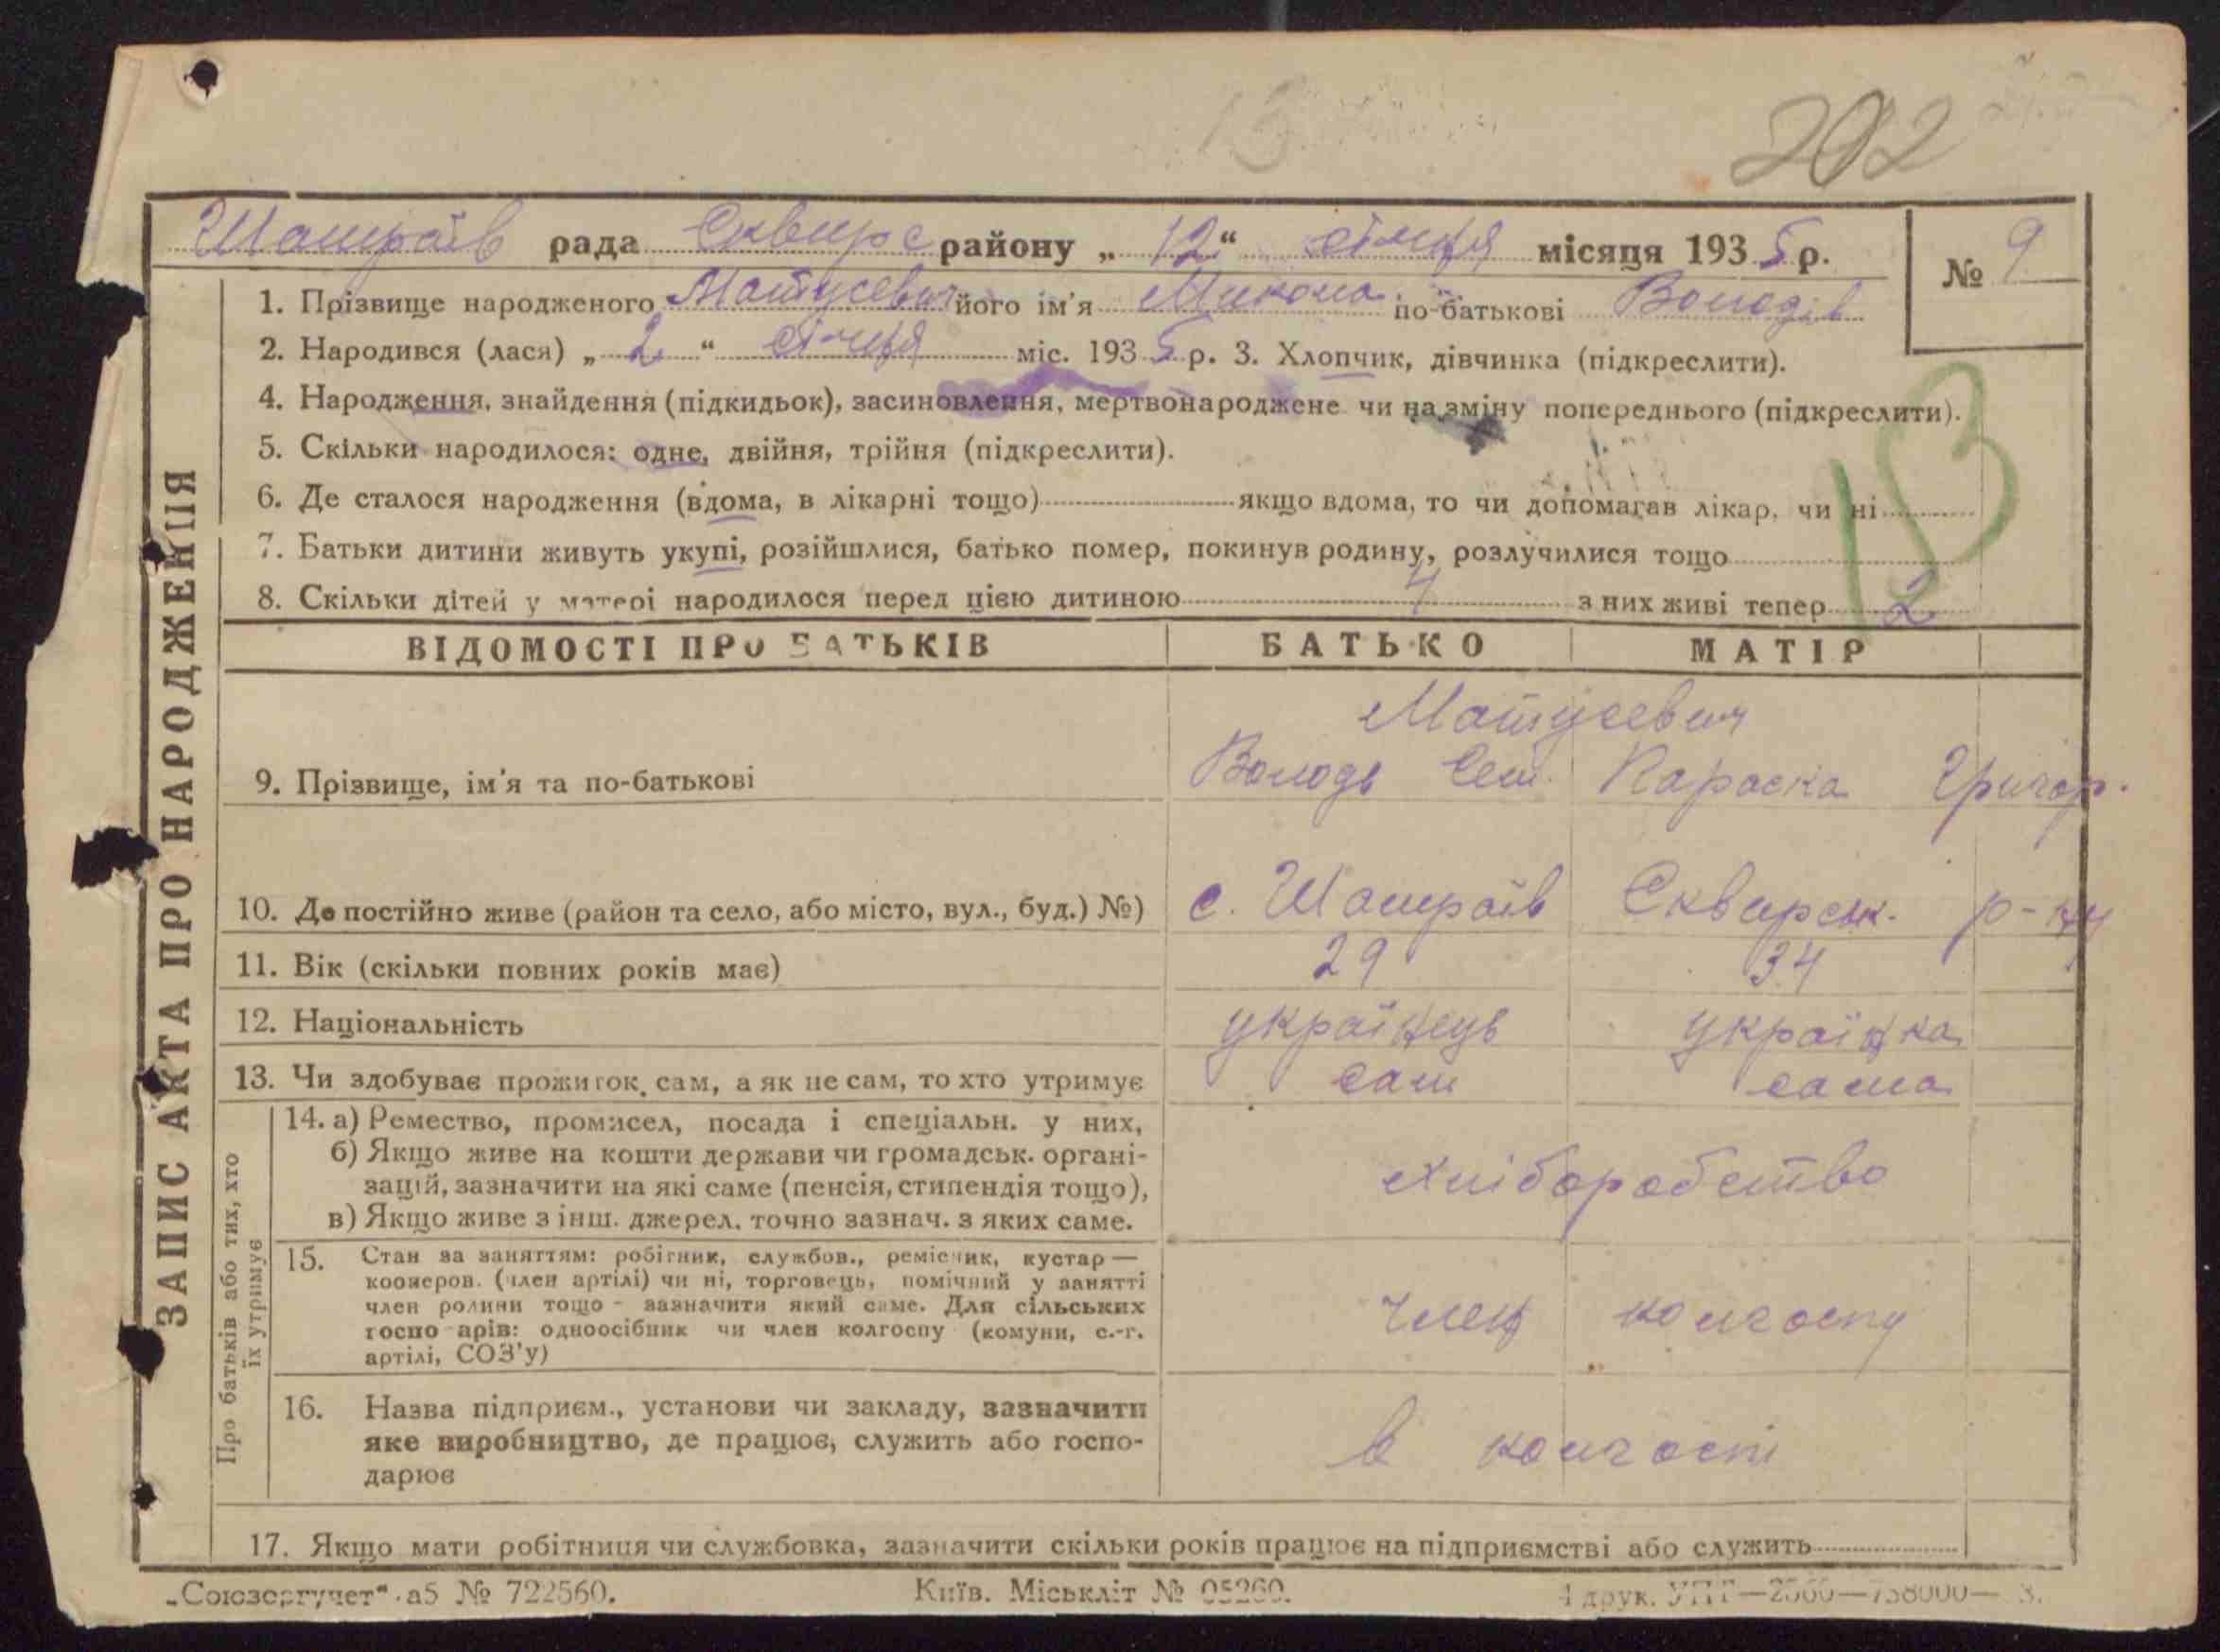 202
Шамраїв рада Сквирс району „ 12 “ січня місяця 193 5 р.
№ 9
1. Прізвище народженого Матусевич його ім'я Микола по-батькові Володів
2. Народився (лася) „ 2 “ січня міс. 193 5 р. 3. Хлопчик, дівчинка (підкреслити).
4. Народження, знайдення (підкидьок), засиновлення, мертвонароджене чи на зміну попереднього (підкреслити).
5. Скільки народилося: одне, двійня, трійня (підкреслити).
6. Де сталося народження (вдома, в лікарні тощо) якщо вдома, то чи допомагав лікар, чи ні
13
7. Батьки дитини живуть укупі, розійшлися, батько помер, покинув родину, розлучилися тощо
8. Скільки дітей у матері народилося перед цією дитиною 4 з них живі тепер 2
ВІДОМОСТІ ПРО БАТЬКІВ БАТЬКО МАТІР
Матусевич
9. Прізвище, ім'я та по-батькові Володь Сем. Параска Григор.
10. Де постійно живе (район та село, або місто, вул., буд.) №) с. Шамраїв Сквирськ. р-ну
11. Вік (скільки повних років має) 29 34
12. Національність українець українка
13. Чи здобуває прожиток сам, а як не сам, то хто утримує сам сама
14. а) Ремество, промисел, посада і спеціальн. у них,
б) Якщо живе на кошти держави чи громадськ. органі-
зацій, зазначити на які саме (пенсія, стипендія тощо),
в) Якщо живе з інш. джерел, точно зазнач. з яких саме.
хліборобство
15. Стан за заняттям: робітник, службов., ремісник, кустар —
кооперов. (член артілі) чи ні, торговець, помічний у занятті
член родини тощо - зазначити який саме. Для сільських
госпо арів: одноосібник чи член колгоспу (комуни, с.-г.
артілі, СОЗ'у)
член колгоспу
16. Назва підприєм., установи чи закладу, зазначити
яке виробництво, де працює, служить або госпо-
дарює
в колгоспі
17. Якщо мати робітниця чи службовка, зазначити скільки років працює на підприємстві або служить
ЗАПИС АКТА ПРО НАРОДЖЕННЯ
Про батьків або тих, хто
їх утримує
„Союзоргучет“ а5 № 722560. Київ. Міськліт № 05260. 4 друк.